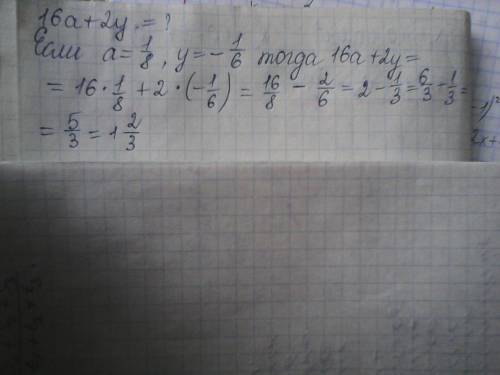 16a+2y = ?
Если a=1/8, y=-1/6 тогда 16a+2y=
= 16·1/8+2·(-1/6)=16/8-2/6=2-1/3=6/3-1/3=
= 5/3 = 1 2/3